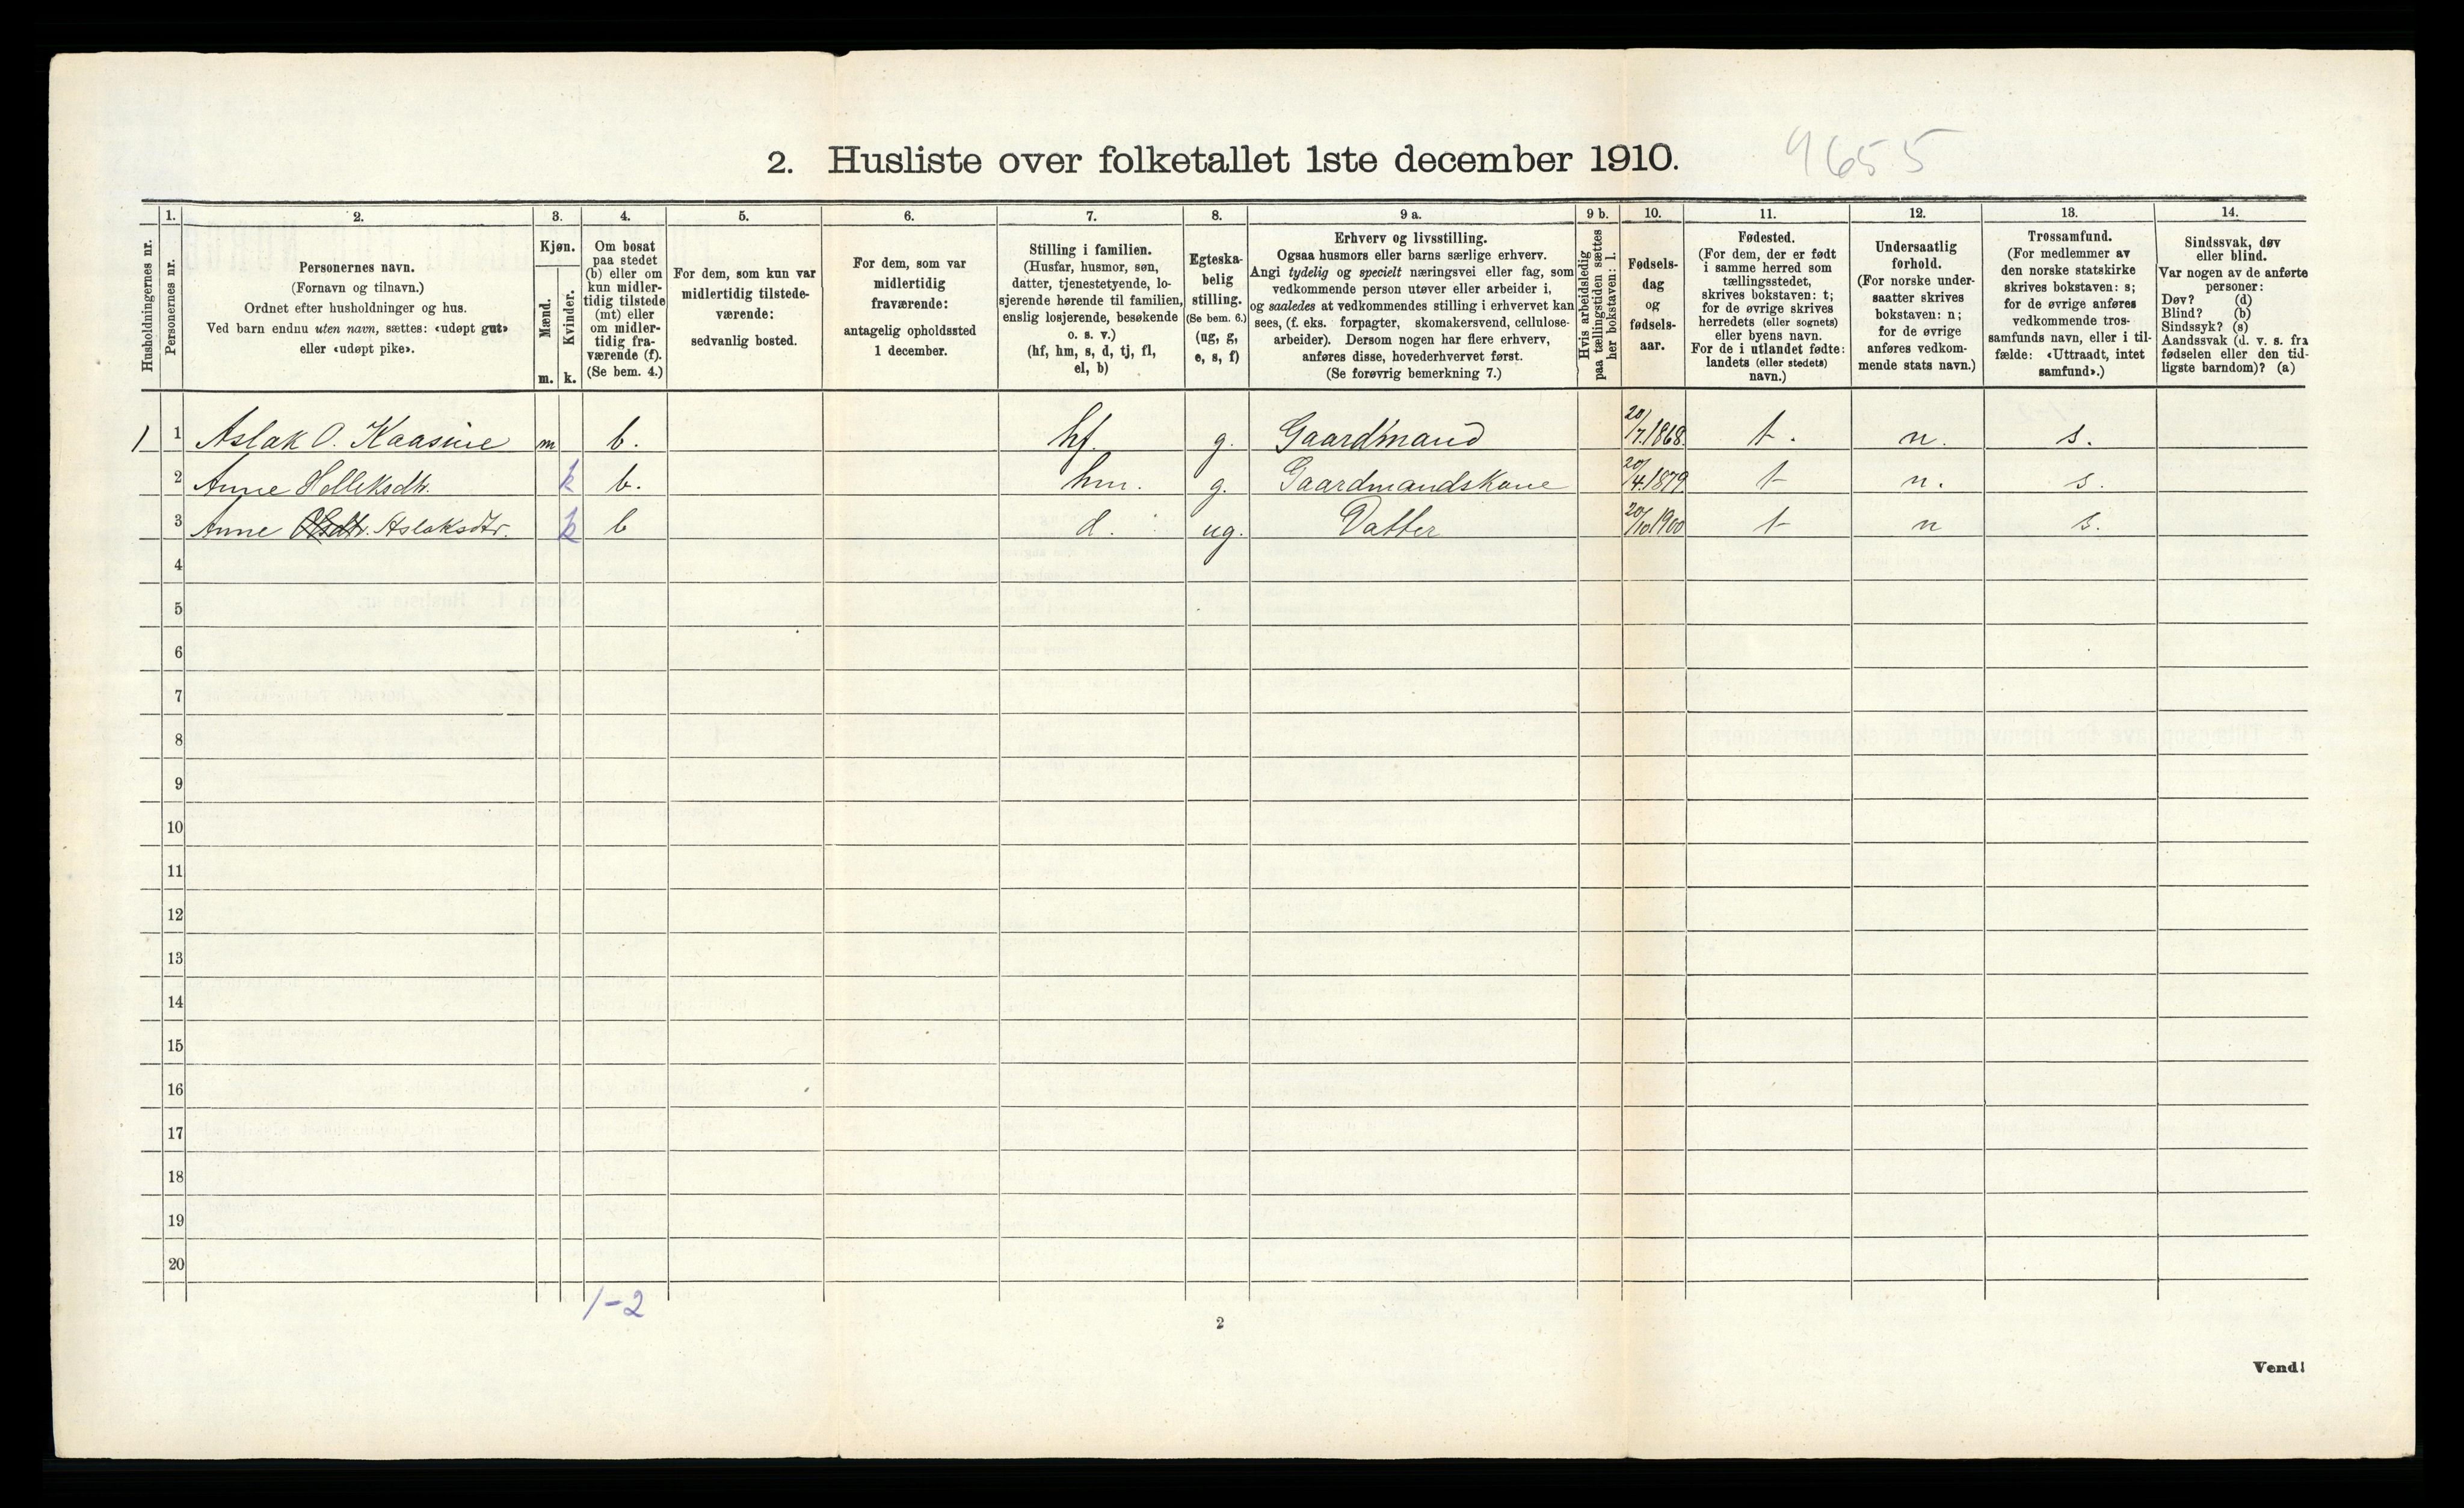 9655
2. Husliste over folketallet 1ste december 1910.
Husholdningernes nr.
1.
Personernes nr.
2.
Personernes navn.
(Fornavn og tilnavn.)
Ordnet efter husholdninger og hus.
Ved barn endnu uten navn, sættes: «udøpt gut»
eller «udøpt pike».
3.
Kjøn.
Mænd.
m.
Kvinder.
k.
4.
Om bosat
paa stedet
(b) eller om
kun midler-
tidig tilstede
(mt) eller
om midler-
tidig fra-
værende (f).
(Se bem. 4.)
5.
For dem, som kun var
midlertidig tilstede-
værende:
sedvanlig bosted.
6.
For dem, som var
midlertidig
fraværende:
antagelig opholdssted
1 december.
7.
Stilling i familien.
(Husfar, husmor, søn,
datter, tjenestetyende, lo-
sjerende hørende til familien,
enslig losjerende, besøkende
o. s. v.)
(hf, hm, s, d, tj, fl,
el, b)
8.
Egteska-
belig
stilling.
(Se bem. 6.)
(ug, g,
e, s, f)
9 a.
Erhverv og livsstilling.
Ogsaa husmors eller barns særlige erhverv.
Angi tydelig og specielt næringsvei eller fag, som
vedkommende person utøver eller arbeider i,
og saaledes at vedkommendes stilling i erhvervet kan
sees, (f. eks. forpagter, skomakersvend, cellulose-
arbeider). Dersom nogen har flere erhverv,
anføres disse, hovederhvervet først.
(Se forøvrig bemerkning 7.)
9 b.
Hvis arbeidsledig
paa tællingstiden sættes
her bokstaven: l.
10.
Fødsels-
dag
og
fødsels-
aar.
11.
Fødested.
(For dem, der er født
i samme herred som
tællingsstedet,
skrives bokstaven: t;
for de øvrige skrives
herredets (eller sognets)
eller byens navn.
For de i utlandet fødte:
landets (eller stedets)
navn.)
12.
Undersaatlig
forhold.
(For norske under-
saatter skrives
bokstaven: n;
for de øvrige
anføres vedkom-
mende stats navn.)
13.
Trossamfund.
(For medlemmer av
den norske statskirke
skrives bokstaven: s;
for de øvrige anføres
vedkommende tros-
samfunds navn, eller i til-
fælde: «Uttraadt, intet
samfund».)
14.
Sindssvak, døv
eller blind.
Var nogen av de anførte
personer:
Døv? (d)
Blind? (b)
Sindssyk? (s)
Aandssvak (d. v. s. fra
fødselen eller den tid-
ligste barndom)? (a)
1 1 Aslak O. Kaasine m b. hf. g. Gaardmand 20/7.1868. t. n. s.
2 Anne Helleksdtr. k b. hm. g. Gaardmandskone 20/4.1879 t n. s.
3 Anne Aslaksdtr. k b d. ug. Datter 20/10.1900 t n s.
4
5
6
7
8
9
10
11
12
13
14
15
16
17
18
19
20
1-2
2
Vend!